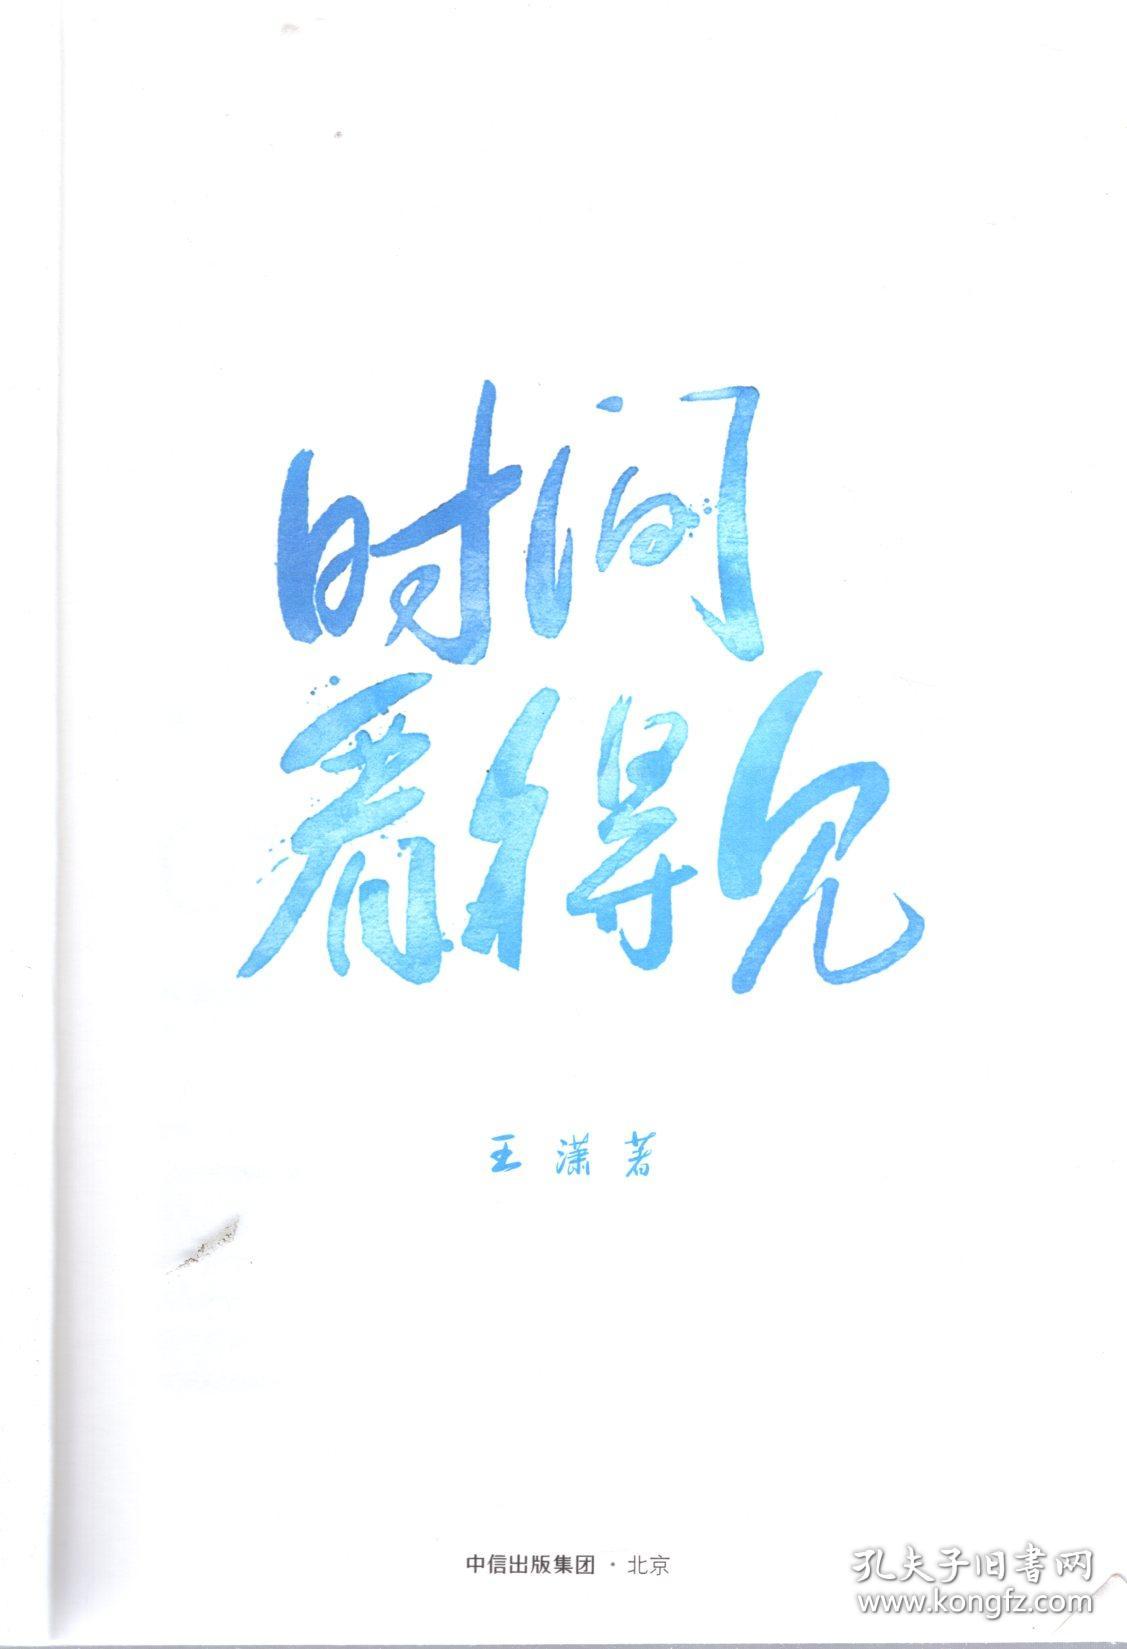 时间
看得见
王潇 著
中信出版集团·北京
孔夫子旧书网
www.kongfz.com